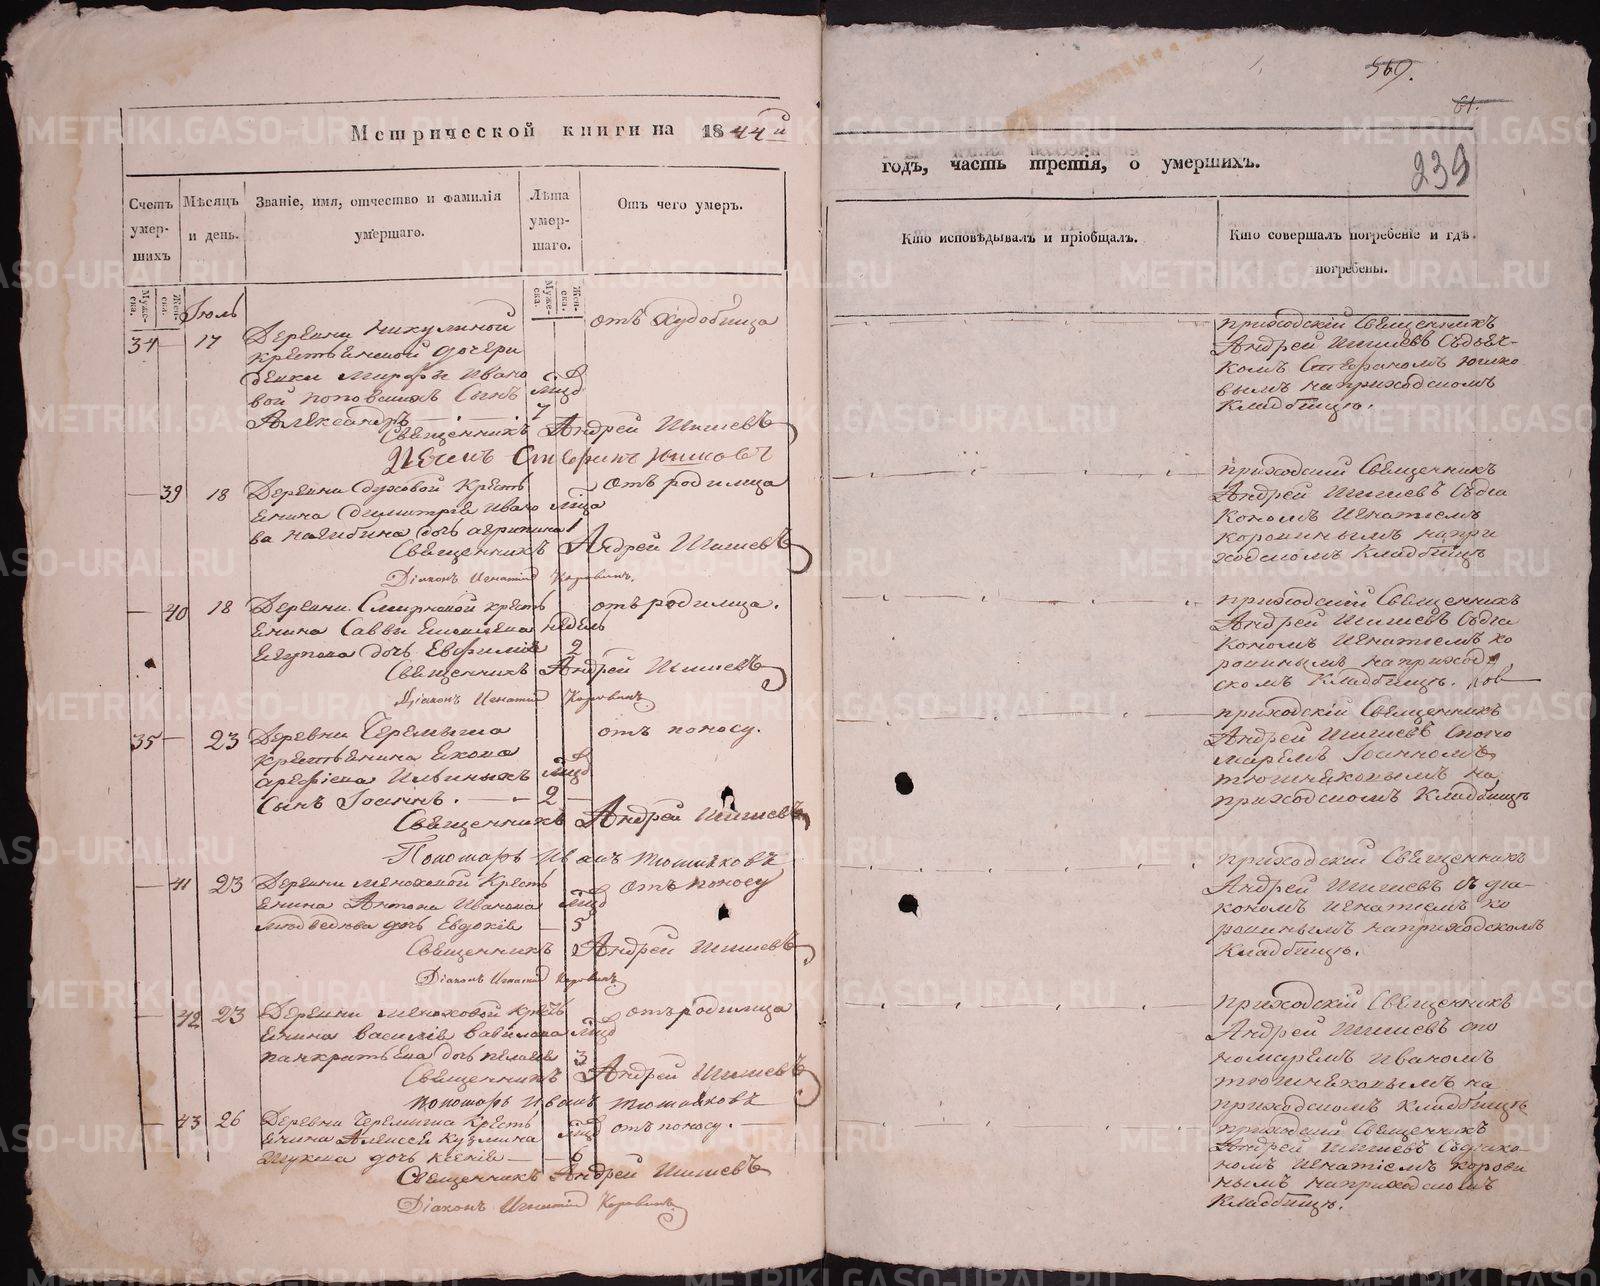 569.
61.
239
Метрической книги на 1844й
годъ, часть третія, о умершихъ.
Счетъ умер-шихъ
Мѣсяцъ и день.
Званіе, имя, отчество и фамилія умершаго.
Лѣта умер-шаго.
Отъ чего умер.
Кто исповѣдывалъ и пріобщалъ.
Кто совершалъ погребеніе и гдѣ погребены.
Муже-ска.
Жен-ска.
Муже-ска.
Жен-ска.
Іюль
34 — 17 Деревни Никулиной
крестьянской дочери
девки Марфы Ивано
вой Поповыхъ сынъ
Александръ
мцд
7
отъ худобища
Священникъ Андрей Шишевъ
Дьячекъ Стефанъ
приходскій Священникъ
Андрей Шишевъ Съдьяч-
комъ Стефаномъ
вымъ наприходскомъ
Кладбищѣ.
— 39 18 Деревни Суховой Кресть
янина Димитрія Ивано
ва дочь Агрипина
мцда
1
отъ родимца
Священникъ Андрей Шишевъ
Діаконъ Игнатій Коровинъ.
приходский Священникъ
Андрей Шишевъ Съдіа
кономъ Игнатіемъ
Коровинымъ напри
ходскомъ Кладбищѣ
— 40 18 Деревни Смирновой кресть
янина Саввы
дочь Евфимія
недель
2
отъ родимца.
Священникъ Андрей Шишевъ
Діаконъ Игнатій Коровинъ
приходский Священникъ
Андрей Шишевъ Съдіа
кономъ Игнатіемъ Ко
ровинымъ наприход
скомъ Кладбищѣ.
35 — 23 Деревни Черемыша
крестьянина Якова
Арефіева Ильиныхъ
Сынъ Іоаннъ.
мцд
2
отъ поносу.
Священникъ Андрей Шишевъ
Пономарь Иванъ Тюшняковъ
приходскій Священникъ
Андрей Шишевъ Споно
маремъ Іоанномъ
тюшняковымъ на
приходскомъ Кладбищѣ
— 41 23 Деревни Меноховой Кресть
янина Антона Иванова
Медведева дочь Евдокія
мцд
5
отъ поносу
Священникъ Андрей Шишевъ
Діаконъ Игнатій Коровинъ
приходский Священникъ
Андрей Шишевъ Съ діа-
кономъ Игнатіемъ Ко
ровинымъ наприходскомъ
Кладбищѣ.
— 42 23 Деревни Меноховой Крест
янина Василія Вавилова
Панкратьева дочь Пелагея
мцд
3
отъ родимца
Священникъ Андрей Шишевъ
Пономарь Иванъ Тюшняковъ
приходский Священникъ
Андрей Шишевъ спо
номаремъ Иваномъ
тюшняковымъ на
приходскомъ Кладбищѣ
— 43 26 Деревни Черемыша Кресть
янина Алексея Кузмина
дочь Ксенія
мцд
6
отъ поносу.
Священникъ Андрей Шишевъ
Діаконъ Игнатій Коровинъ
приходский Священникъ
Андрей Шишевъ Съдіако
номъ Игнатіемъ Корови
нымъ наприходскомъ
Кладбищѣ.
METRIKI.GASO-URAL.RU